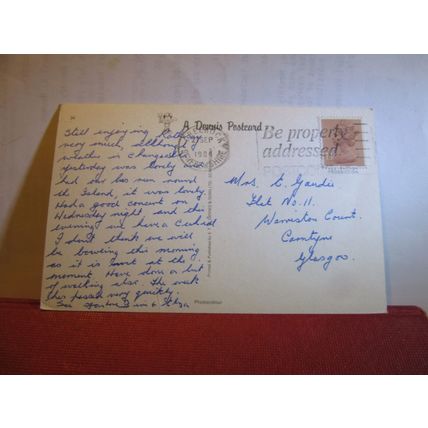 A Dennis Postcard
SEP
1984
Be properly
addressed
Still enjoying Rothesay
very much, although
weather is changeable
yesterday was lovely and
had our bus run round
the Island, it was lovely.
Had a good concert on
Wednesday night and this
evening we have a Ceilidh
I don't think we will
be bowling this morning
as it is wet at the
moment. Have done a lot
of walking else. The week
has passed very quickly.
Mrs. C. Gaudie
Flat No. 11.
Warriston Court.
Carntyne
Glasgow.
Photocolour